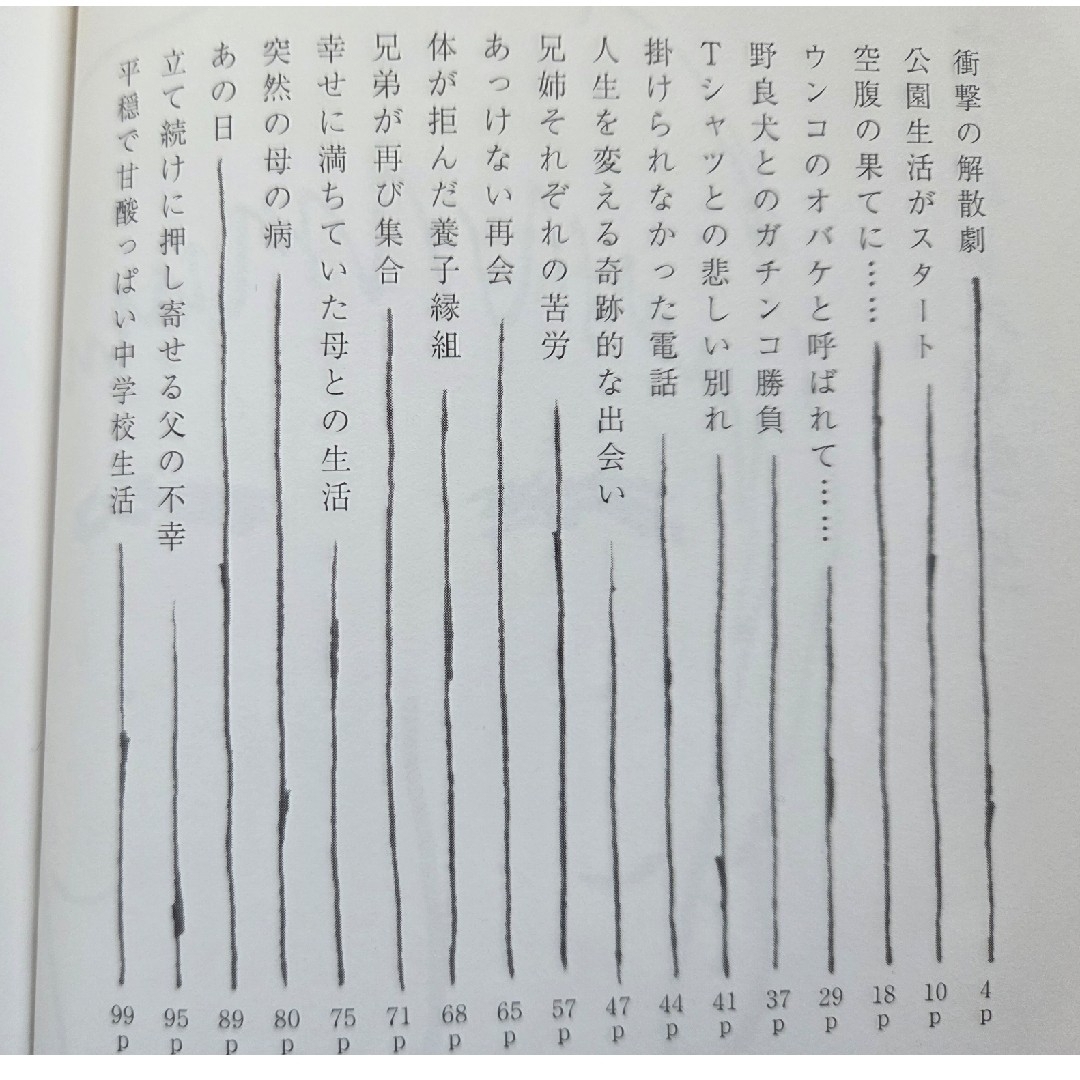 衝撃の解散劇 4p
公園生活がスタート 10p
空腹の果てに…… 18p
ウンコのオバケと呼ばれて…… 29p
野良犬とのガチンコ勝負 37p
Tシャツとの悲しい別れ 41p
掛けられなかった電話 44p
人生を変える奇跡的な出会い 47p
兄姉それぞれの苦労 57p
あっけない再会 65p
体が拒んだ養子縁組 68p
兄弟が再び集合 71p
幸せに満ちていた母との生活 75p
突然の母の病 80p
あの日 89p
立て続けに押し寄せる父の不幸 95p
平穏で甘酸っぱい中学校生活 99p